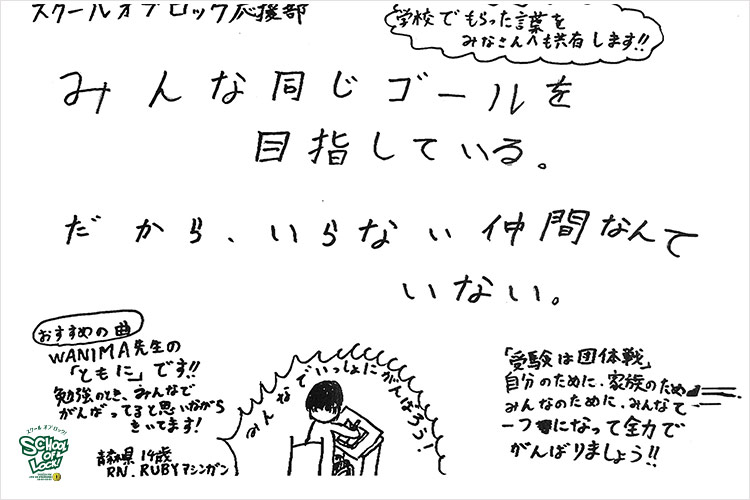 スクールオブロック応援部
学校でもらった言葉を
みなさんへも共有します!!
みんな同じゴールを
目指している。
だから、いらない仲間なんて
いない。
おすすめの曲
WANIMA先生の
「ともに」です!!
勉強のとき、みんなで
がんばってると思いながら
きいてます!
青森県 14歳
RN. RUBYマシンガン
みんなでいっしょにがんばろう!
「受験は団体戦」
自分のために、家族のため
みんなのために、みんなで
一つになって全力で
がんばりましょう!!
スクールオブロック!
SCHOOL
OF
LOCK!